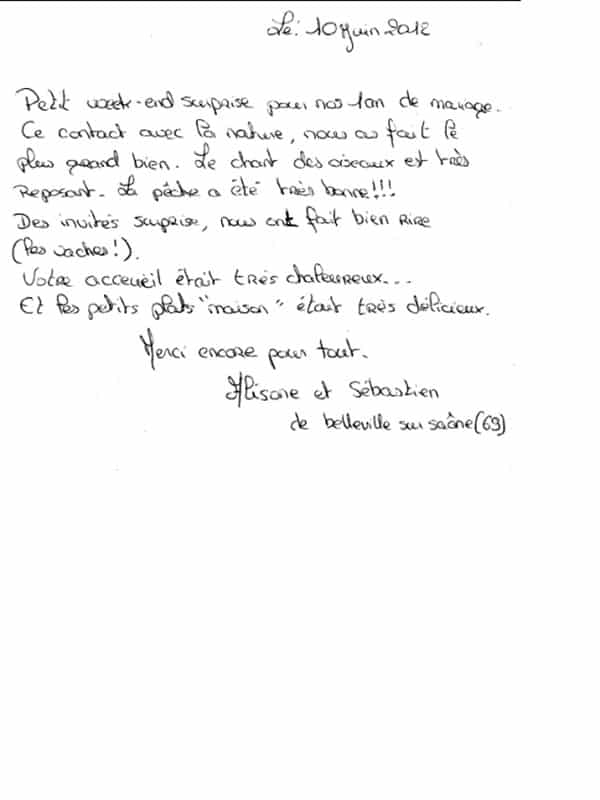 Le: 10 Juin 2012
Petit week-end surprise pour nos 1an de mariage.
Ce contact avec la nature, nous as fait le
plus grand bien. Le chant des oiseaux et très
Reposant. La pêche a été très bonne!!!
Des invités surprise, nous ont fait bien Rire
(les vaches!).
Votre acceuéil était très chaleureux...
Et les petits plats "maison" était très délicieux.
Merci encore pour tout.
Alisone et Sébastien
de belleville sur saône (69)